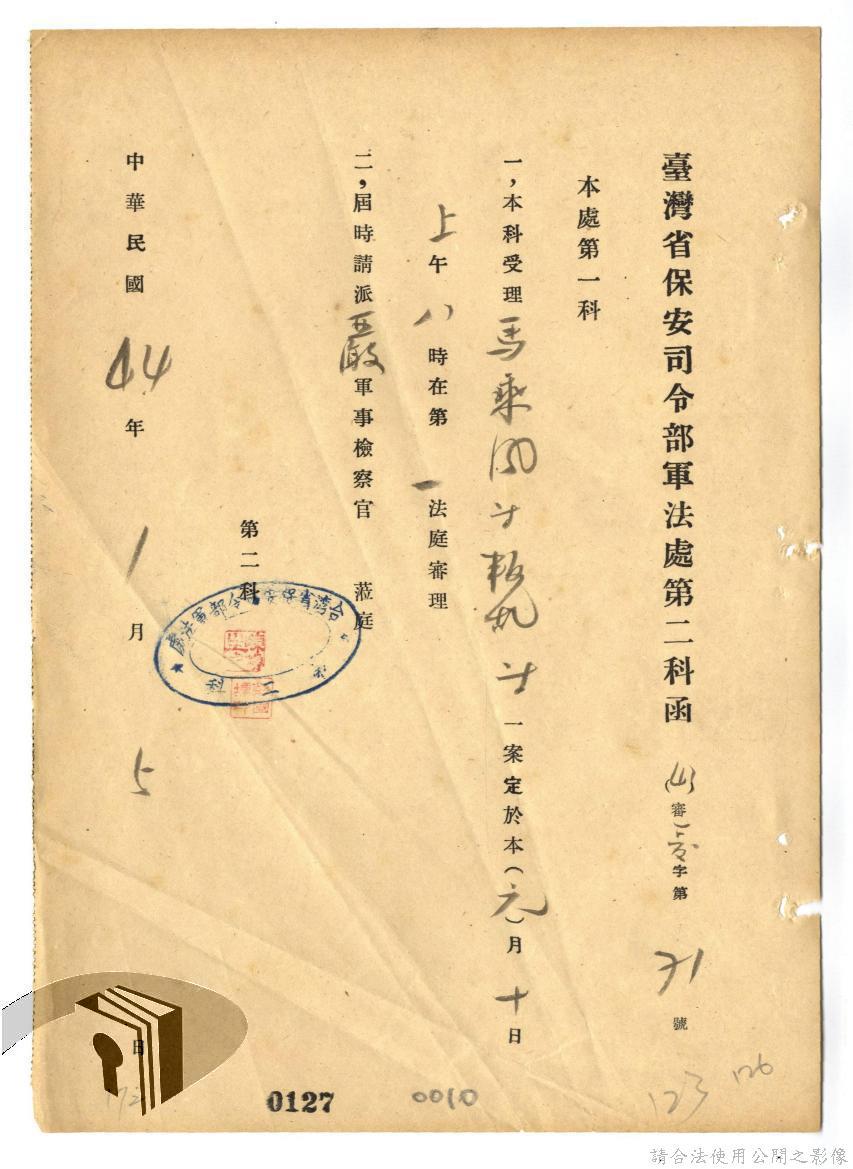 臺灣省保安司令部軍法處第二科函 (44)審字第71號
本處第一科
一,本科受理馬乘風等叛亂等一案定於本(元)月十日
上午八時在第一法庭審理
二,屆時請派嚴軍事檢察官 蒞庭
第二科
台湾省保安司令部軍法處
第二科
中華民國44年1月5日
0127
0010
123
126
172
請合法使用公開之影像